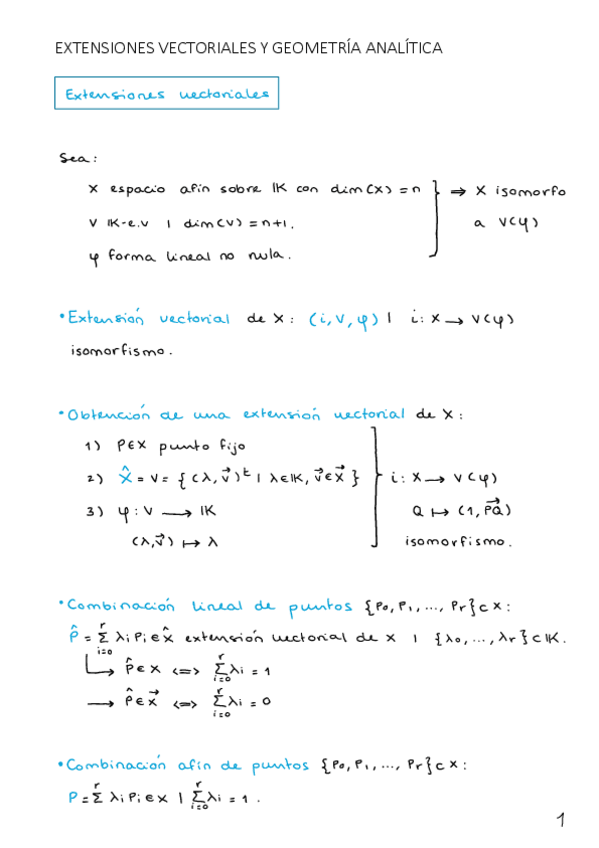 EXTENSIONES VECTORIALES Y GEOMETRÍA ANALÍTICA
Extensiones vectoriales
Sea:
X espacio afín sobre IK con dim(X) = n } ⇒ X isomorfo
V IK-e.v | dim(V) = n+1. a V(φ)
φ forma lineal no nula.
• Extensión vectorial de X: (i, V, φ) | i: X → V(φ)
isomorfismo.
• Obtención de una extensión vectorial de X:
1) P∈X punto fijo
2) X̂ = V = { (λ, v⃗)ᵗ | λ∈IK, v⃗∈X⃗ } i: X → V(φ)
3) φ: V → IK Q ↦ (1, P⃗Q)
(λ, v⃗) ↦ λ isomorfismo.
• Combinación lineal de puntos {P₀, P₁, ..., Pr} ⊂ X:
P̂ = Σ_{i=0}^{r} λi Pi ∈ X̂ extensión vectorial de X | {λ₀, ..., λr} ⊂ IK.
↳ P̂ ∈ X <=> Σ_{i=0}^{r} λi = 1
→ P̂ ∈ X⃗ <=> Σ_{i=0}^{r} λi = 0
• Combinación afín de puntos {P₀, P₁, ..., Pr} ⊂ X:
P = Σ_{i=0}^{r} λi Pi ∈ X | Σ_{i=0}^{r} λi = 1.
1